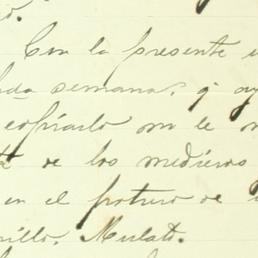 o.
Con la presente
semana, y
copiarlo no le
de los medieros
en el potrero de
rillo, Mulato.